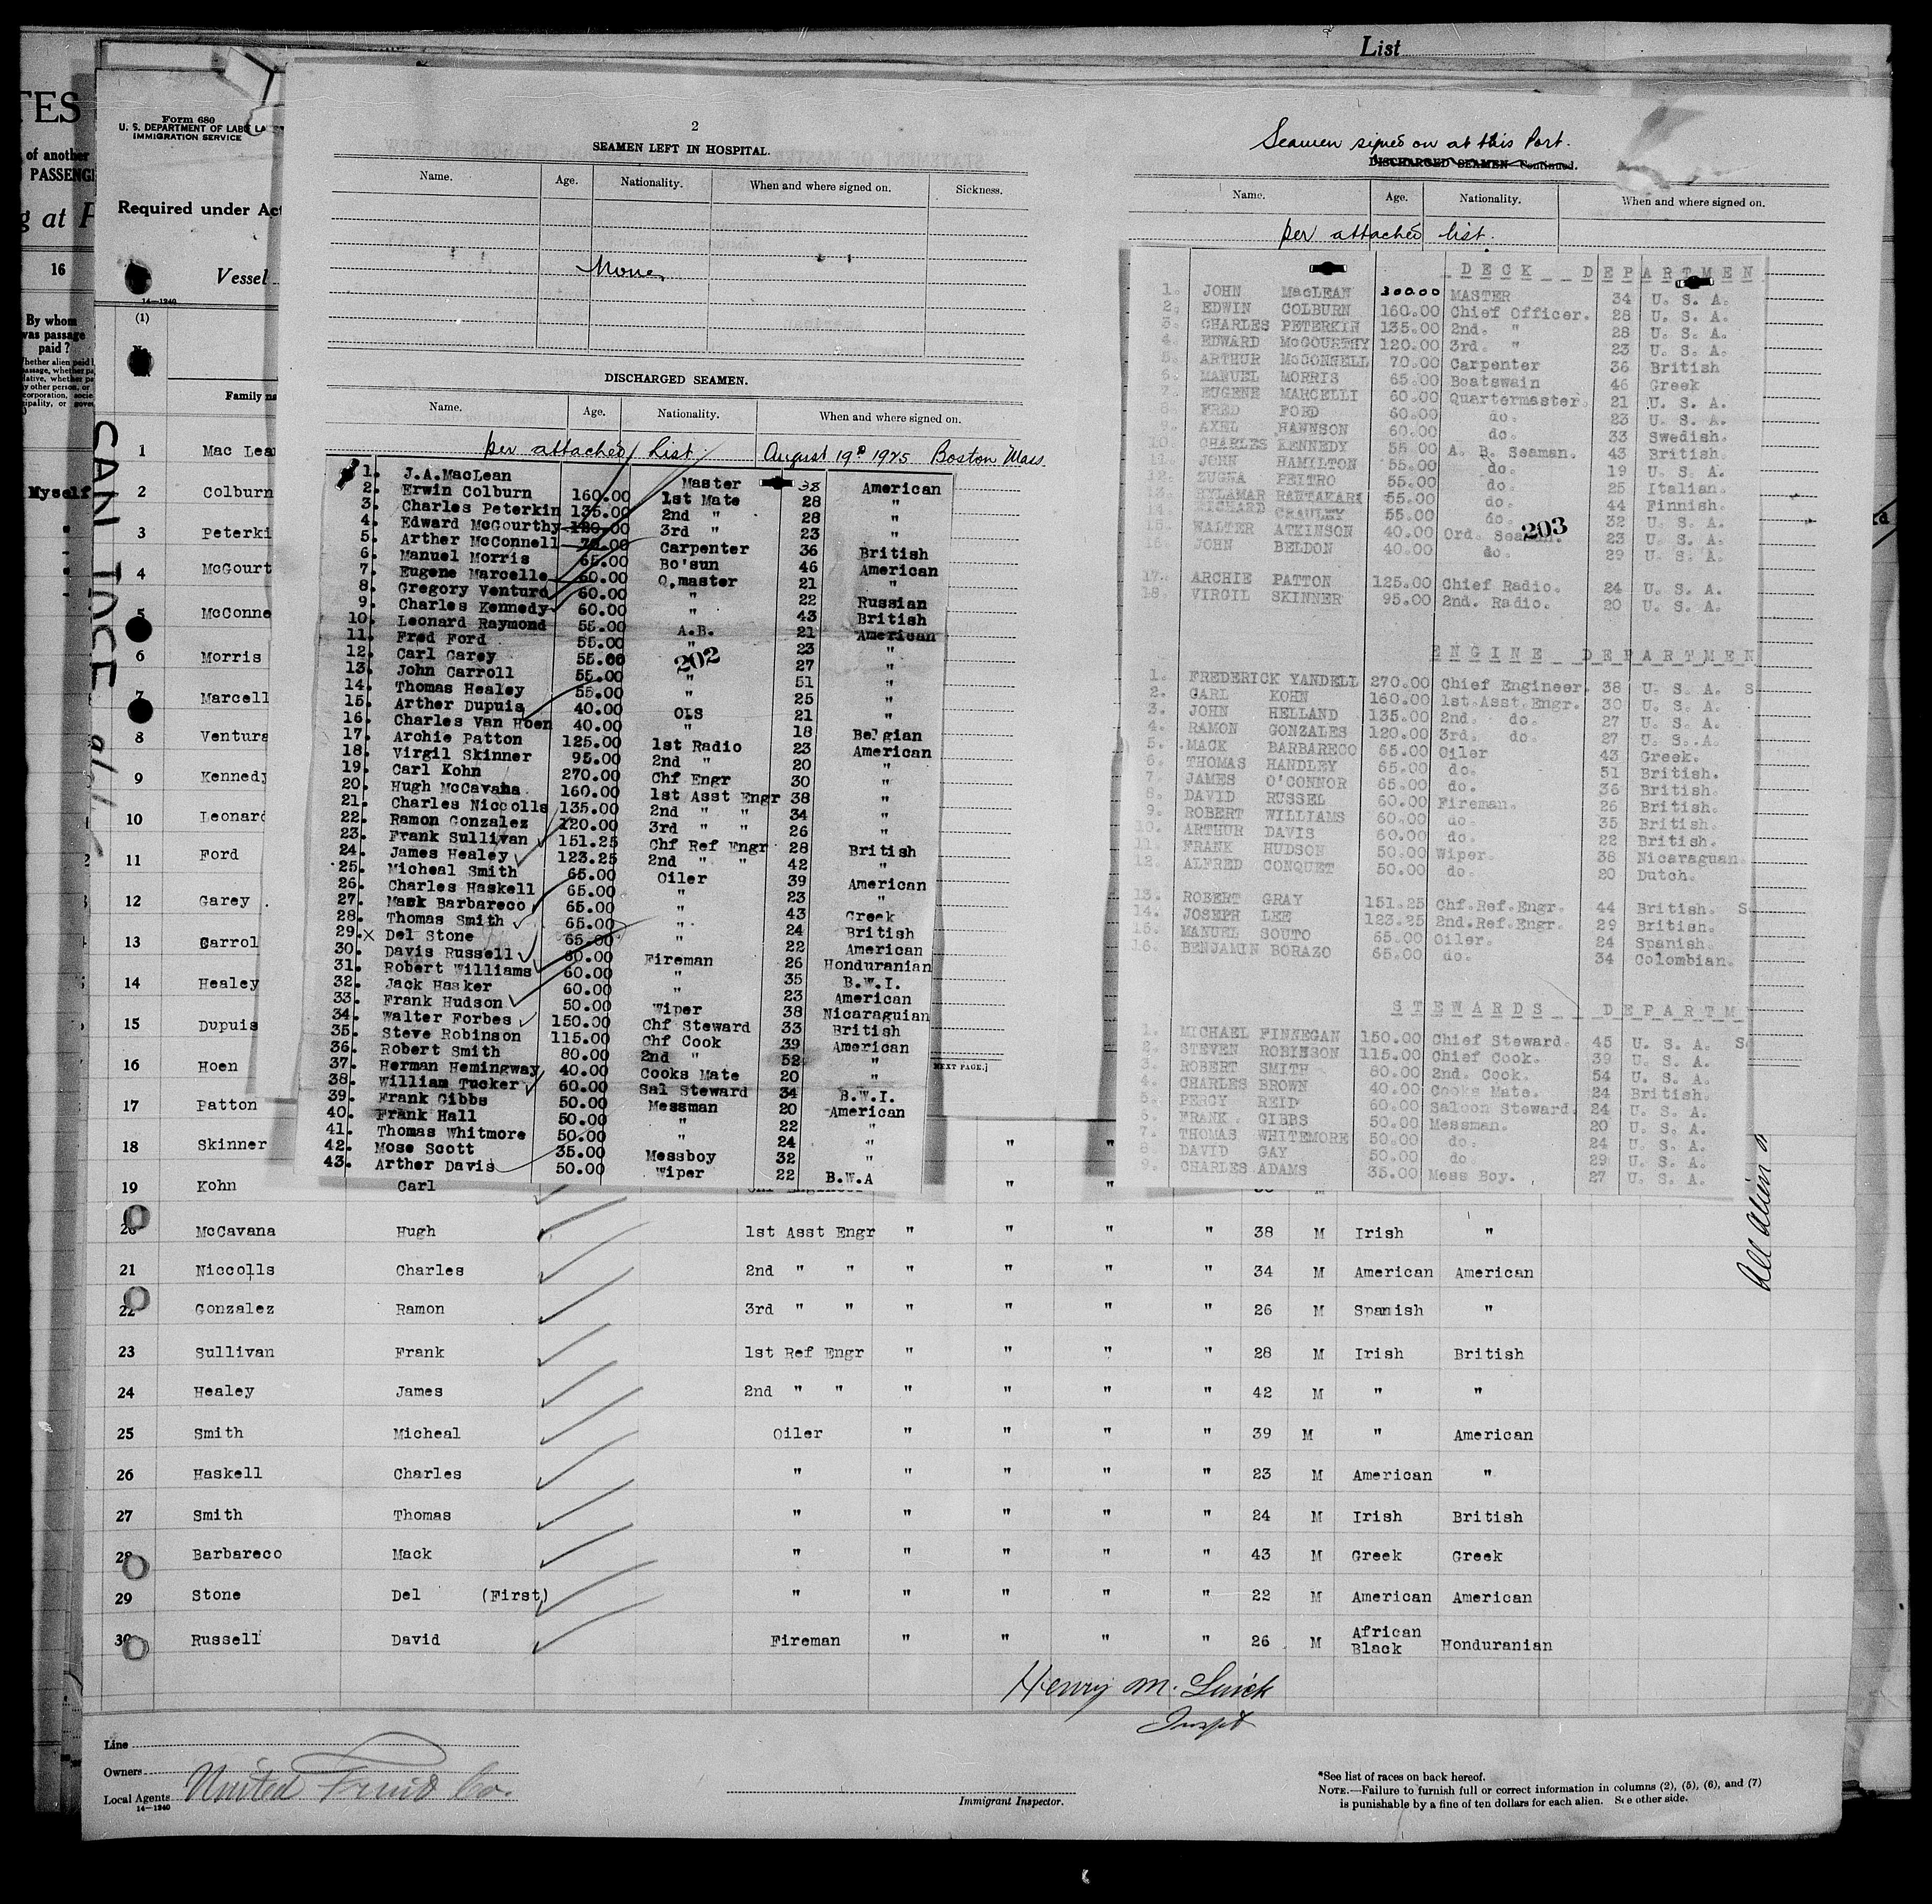 List
TES
of another
PASSENG
g at P
16
By whom
was passage
paid?
Myself
Form 680
U. S. DEPARTMENT OF LABO
IMMIGRATION SERVICE
Required under Act
Vessel
14—1240
(1)
Family na
CAN INCE
2
SEAMEN LEFT IN HOSPITAL.
Name. Age. Nationality. When and where signed on. Sickness.
None
DISCHARGED SEAMEN.
Name. Age. Nationality. When and where signed on.
per attached List August 19th 1925 Boston Mass.
1. J.A.MacLean Master 38 American
2. Erwin Colburn 160.00 1st Mate 28 "
3. Charles Peterkin 135.00 2nd " 28 "
4. Edward McGourthy 120.00 3rd " 23 "
5. Arther McConnell 70.00 Carpenter 36 British
6. Manuel Morris 65.00 Bo'sun 46 American
7. Eugene Marcelle 60.00 Q.master 21 "
8. Gregory Venturd 60.00 " 22 Russian
9. Charles Kennedy 60.00 " 43 British
10. Leonard Raymond 55.00 A.B. 21 American
11. Fred Ford 55.00 " 23 "
12. Carl Garey 55.00 202 27 "
13. John Carroll 55.00 " 51 "
14. Thomas Healey 55.00 " 25 "
15. Arther Dupuis 40.00 OLS 21 "
16. Charles Van Hoen 40.00 " 18 Belgian
17. Archie Patton 125.00 1st Radio 23 American
18. Virgil Skinner 95.00 2nd " 20 "
19. Carl Kohn 270.00 Chf Engr 30 "
20. Hugh McCavana 160.00 1st Asst Engr 38 "
21. Charles Niccolls 135.00 2nd " " 34 "
22. Ramon Gonzalez 120.00 3rd " " 26 "
23. Frank Sullivan 151.25 Chf Ref Engr 28 British
24. James Healey 123.25 2nd " " 42 "
25. Micheal Smith 65.00 Oiler 39 American
26. Charles Haskell 65.00 " 23 "
27. Mack Barbareco 65.00 " 43 Greek
28. Thomas Smith 65.00 " 24 British
29. x Del Stone 65.00 " 22 American
30. Davis Russell 60.00 Fireman 26 Honduranian
31. Robert Williams 60.00 " 35 B.W.I.
32. Jack Hasker 60.00 " 23 American
33. Frank Hudson 50.00 Wiper 38 Nicaraguian
34. Walter Forbes 150.00 Chf Steward 33 British
35. Steve Robinson 115.00 Chf Cook 39 American
36. Robert Smith 80.00 2nd " 52 "
37. Herman Hemingway 40.00 Cooks Mate 20 "
38. William Tucker 60.00 Sal Steward 34 B.W.I.
39. Frank Gibbs 50.00 Messman 20 American
40. Frank Hall 50.00 " 22 "
41. Thomas Whitmore 50.00 " 24 "
42. Mose Scott 35.00 Messboy 32 "
43. Arther Davis 50.00 Wiper 22 B.W.A
NEXT PAGE.]
Seamen signed on at this Port.
DISCHARGED SEAMEN—Continued.
Name. Age. Nationality. When and where signed on.
per attached list.
DECK DEPARTMEN
1. JOHN MacLEAN 300.00 MASTER 34 U. S. A.
2. EDWIN COLBURN 160.00 Chief Officer. 28 U. S. A.
3. CHARLES PETERKIN 135.00 2nd. " 28 U. S. A.
4. EDWARD McGOURTHY 120.00 3rd. " 23 U. S. A.
5. ARTHUR McCONNELL 70.00 Carpenter 36 British
6. MANUEL MORRIS 65.00 Boatswain 46 Greek
7. EUGENE MARCELLI 60.00 Quartermaster. 21 U. S. A.
8. FRED FORD 60.00 do. 23 U. S. A.
9. AXEL HANNSON 60.00 do. 33 Swedish.
10. CHARLES KENNEDY 55.00 A. B. Seaman. 43 British.
11. JOHN HAMILTON 55.00 do. 19 U. S. A.
12. ZUGNA PEITRO 55.00 do. 25 Italian.
13. HYLAMAR RANTAKARI 55.00 do. 44 Finnish.
14. RICHARD CRAULEY 55.00 do. 32 U. S. A.
15. WALTER ATKINSON 40.00 Ord. Seaman. 23 U. S. A.
203
16. JOHN BELDON 40.00 do. 29 U. S. A.
17. ARCHIE PATTON 125.00 Chief Radio. 24 U. S. A.
18. VIRGIL SKINNER 95.00 2nd. Radio. 20 U. S. A.
ENGINE DEPARTMEN
1. FREDERICK YANDELL 270.00 Chief Engineer. 38 U. S. A. S
2. CARL KOHN 160.00 1st.Asst.Engr. 30 U. S. A.
3. JOHN HELLAND 135.00 2nd. do. 27 U. S. A.
4. RAMON GONZALES 120.00 3rd. do. 27 U. S. A.
5. MACK BARBARECO 65.00 Oiler 43 Greek.
6. THOMAS HANDLEY 65.00 do. 51 British.
7. JAMES O'CONNOR 65.00 do. 36 British.
8. DAVID RUSSEL 60.00 Fireman. 26 British.
9. ROBERT WILLIAMS 60.00 do. 35 British.
10. ARTHUR DAVIS 60.00 do. 22 British.
11. FRANK HUDSON 50.00 Wiper. 38 Nicaraguan.
12. ALFRED CONQUET 50.00 do. 20 Dutch.
13. ROBERT GRAY 151.25 Chf.Ref.Engr. 44 British. S
14. JOSEPH LEE 123.25 2nd.Ref.Engr. 29 British.
15. MANUEL SOUTO 65.00 Oiler. 24 Spanish.
16. BENJAMIN BORAZO 65.00 do. 34 Colombian.
STEWARDS DEPARTM
1. MICHAEL FINNEGAN 150.00 Chief Steward. 45 U. S. A. S
2. STEVEN ROBINSON 115.00 Chief Cook. 39 U. S. A.
3. ROBERT SMITH 80.00 2nd. Cook. 54 U. S. A.
4. CHARLES BROWN 40.00 Cooks Mate. 24 British.
5. PERCY REID 60.00 Saloon Steward. 24 U. S. A.
6. FRANK GIBBS 50.00 Messman. 20 U. S. A.
7. THOMAS WHITEMORE 50.00 do. 24 U. S. A.
8. DAVID GAY 50.00 do 29 U. S. A.
9. CHARLES ADAMS 35.00 Mess Boy. 27 U. S. A.
1 Mac Lean
2 Colburn
3 Peterki
4 McGourt
5 McConne
6 Morris
7 Marcell
8 Venturs
9 Kennedy
10 Leonard
11 Ford
12 Garey
13 Carrol
14 Healey
15 Dupuis
16 Hoen
17 Patton
18 Skinner " "
19 Kohn Carl " "
20 McCavana Hugh 1st Asst Engr " " " " 38 M Irish "
21 Niccolls Charles 2nd " " " " " " 34 M American American
22 Gonzalez Ramon 3rd " " " " " " 26 M Spanish "
23 Sullivan Frank 1st Ref Engr " " " " 28 M Irish British
24 Healey James 2nd " " " " " " 42 M " "
25 Smith Micheal Oiler " " " " 39 M " American
26 Haskell Charles " " " " " 23 M American "
27 Smith Thomas " " " " " 24 M Irish British
28 Barbareco Mack " " " " " 43 M Greek Greek
29 Stone Del (First) " " " " " 22 M American American
30 Russell David Fireman " " " " 26 M African Black Honduranian
Henry M.
Inspt
Line
Owners
Local Agents
United Fruit Co.
14—1240
Immigrant Inspector.
*See list of races on back hereof.
NOTE.—Failure to furnish full or correct information in columns (2), (5), (6), and (7)
is punishable by a fine of ten dollars for each alien. See other side.